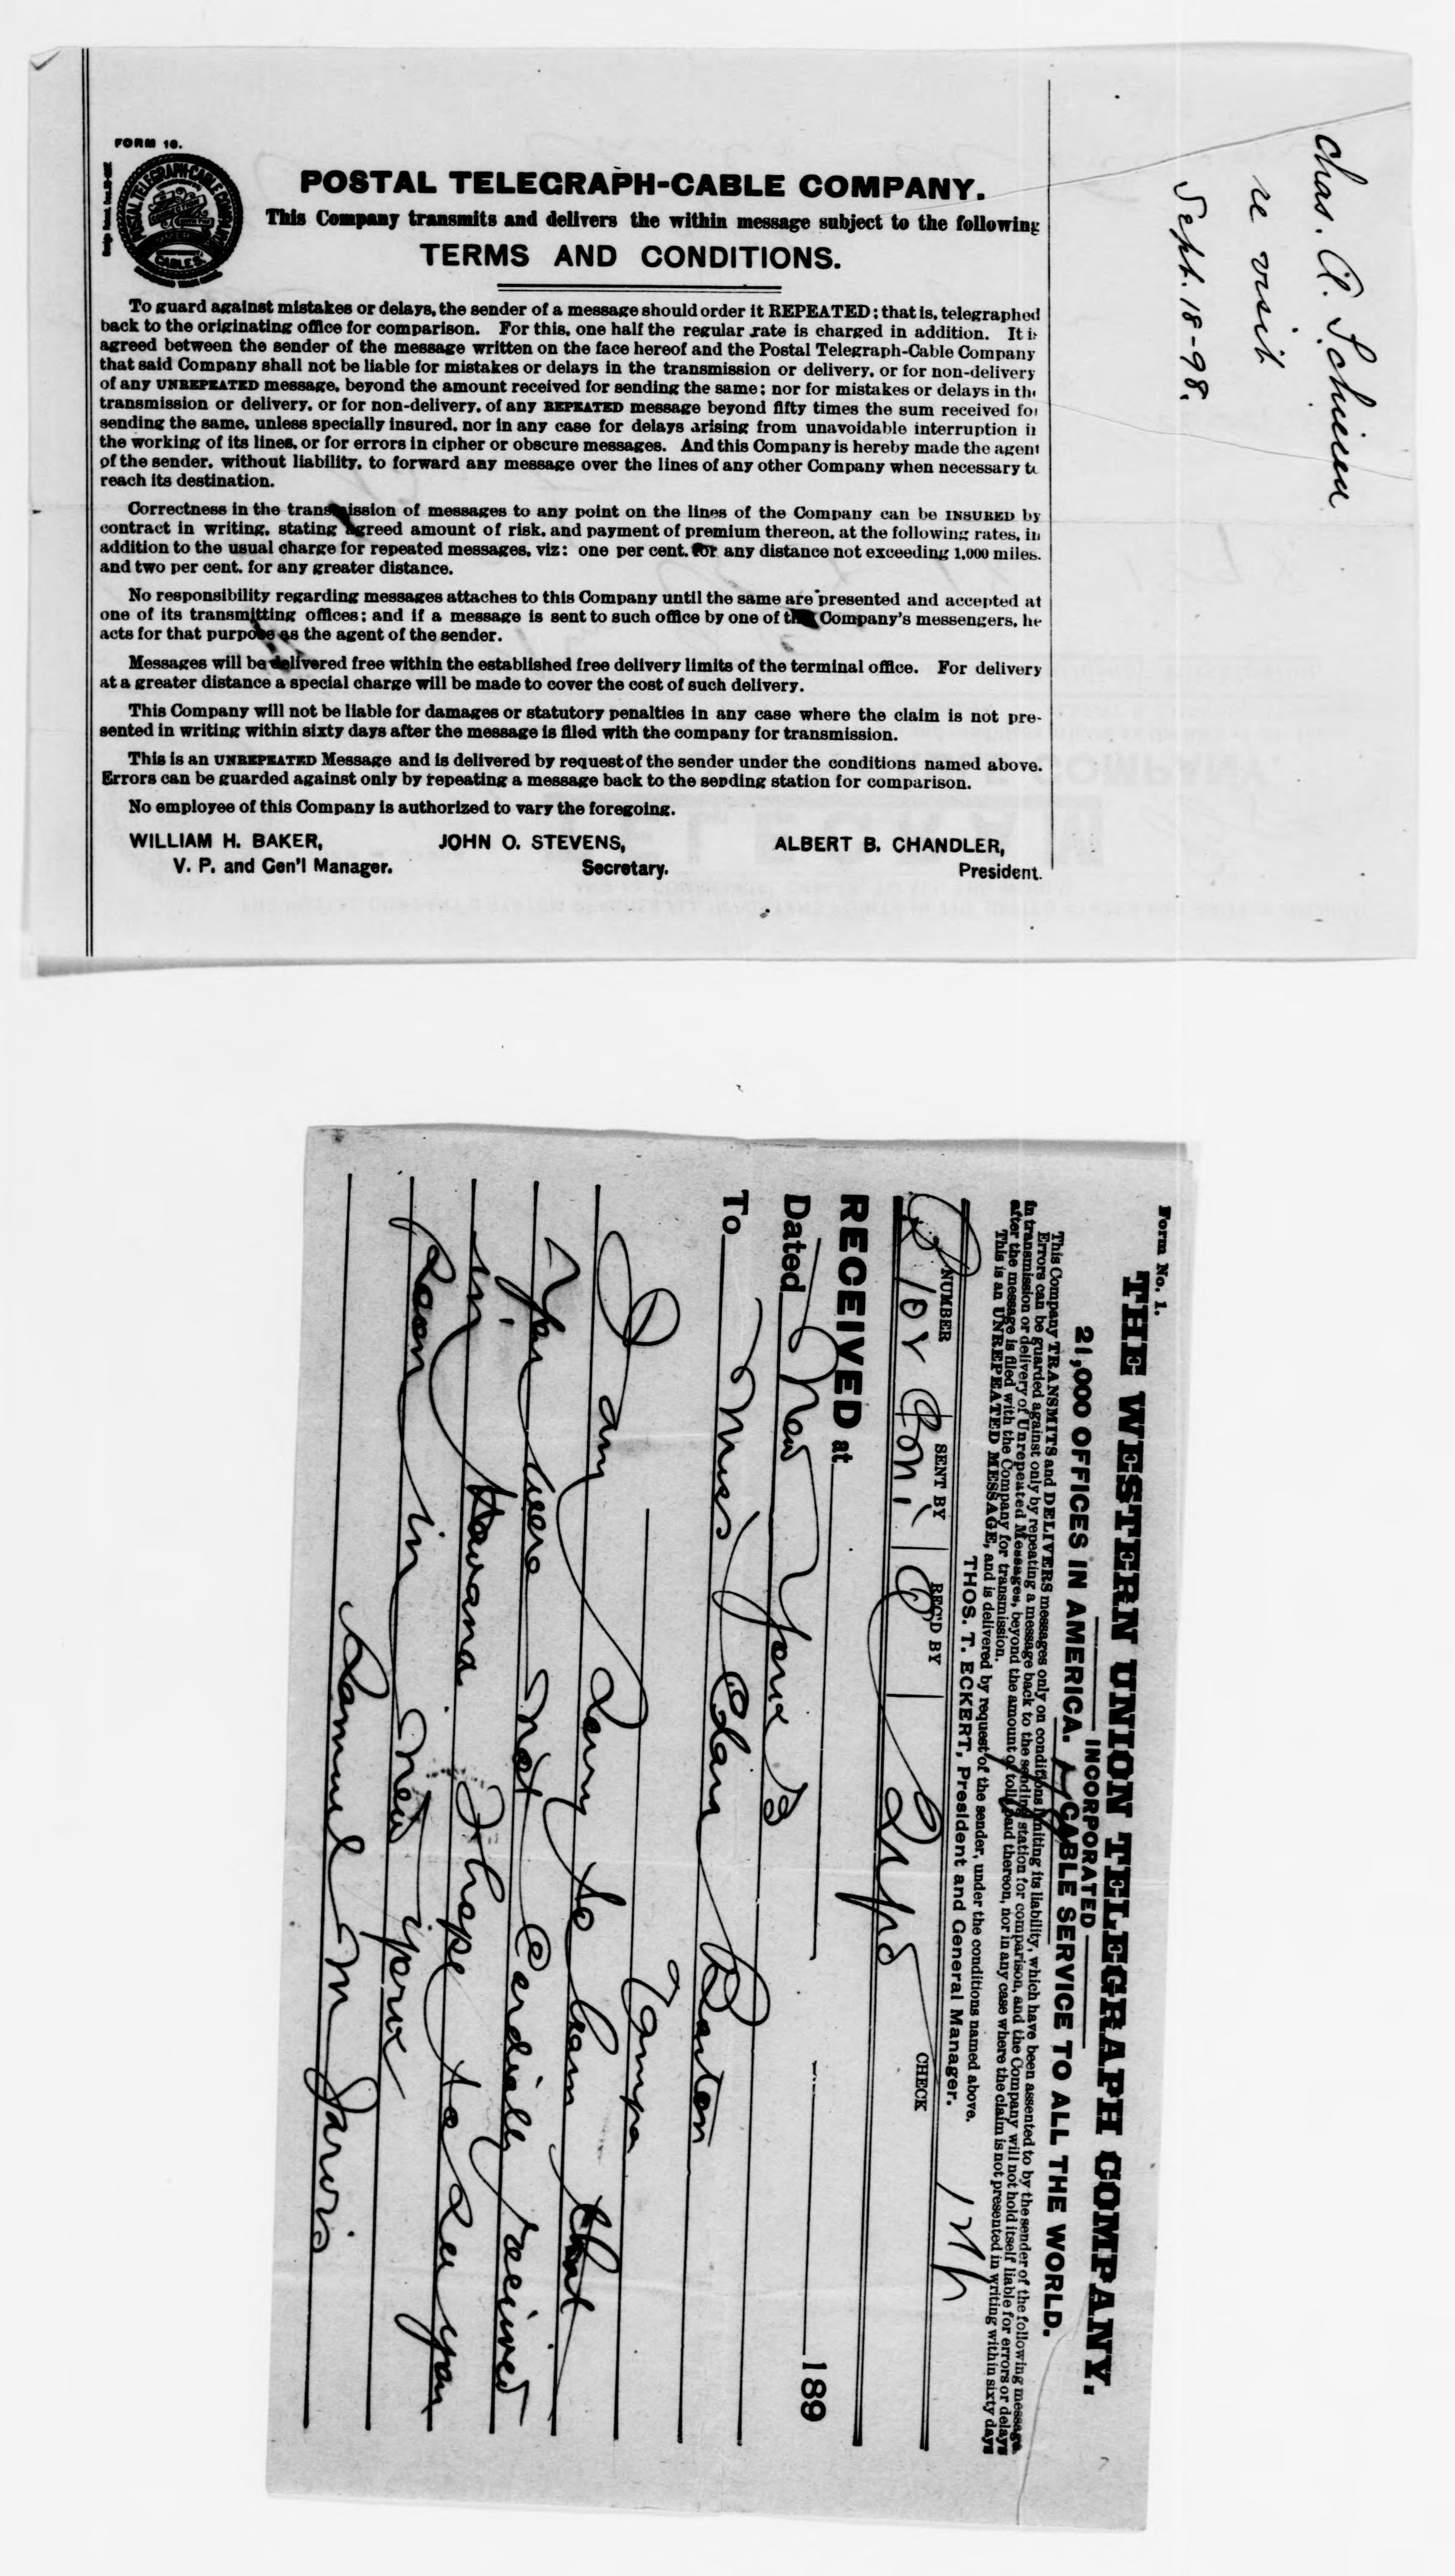 FORM 16.
POSTAL TELEGRAPH-CABLE COMPANY.
This Company transmits and delivers the within message subject to the following
TERMS AND CONDITIONS.
To guard against mistakes or delays, the sender of a message should order it REPEATED; that is, telegraphed
back to the originating office for comparison. For this, one half the regular rate is charged in addition. It is
agreed between the sender of the message written on the face hereof and the Postal Telegraph-Cable Company
that said Company shall not be liable for mistakes or delays in the transmission or delivery, or for non-delivery
of any UNREPEATED message, beyond the amount received for sending the same; nor for mistakes or delays in the
transmission or delivery, or for non-delivery, of any REPEATED message beyond fifty times the sum received for
sending the same, unless specially insured, nor in any case for delays arising from unavoidable interruption in
the working of its lines, or for errors in cipher or obscure messages. And this Company is hereby made the agent
of the sender, without liability, to forward any message over the lines of any other Company when necessary to
reach its destination.
Correctness in the transmission of messages to any point on the lines of the Company can be INSURED by
contract in writing, stating agreed amount of risk, and payment of premium thereon, at the following rates, in
addition to the usual charge for repeated messages, viz: one per cent. for any distance not exceeding 1,000 miles.
and two per cent. for any greater distance.
No responsibility regarding messages attaches to this Company until the same are presented and accepted at
one of its transmitting offices; and if a message is sent to such office by one of the Company's messengers, he
acts for that purpose as the agent of the sender.
Messages will be delivered free within the established free delivery limits of the terminal office. For delivery
at a greater distance a special charge will be made to cover the cost of such delivery.
This Company will not be liable for damages or statutory penalties in any case where the claim is not pre-
sented in writing within sixty days after the message is filed with the company for transmission.
This is an UNREPEATED Message and is delivered by request of the sender under the conditions named above.
Errors can be guarded against only by repeating a message back to the sending station for comparison.
No employee of this Company is authorized to vary the foregoing.
WILLIAM H. BAKER, JOHN O. STEVENS, ALBERT B. CHANDLER,
V. P. and Gen'l Manager. Secretary. President.
Chas. A. Schieren
re visit
Sept. 18-98.
Form No. 1.
THE WESTERN UNION TELEGRAPH COMPANY.
INCORPORATED
21,000 OFFICES IN AMERICA. CABLE SERVICE TO ALL THE WORLD.
This Company TRANSMITS and DELIVERS messages only on conditions limiting its liability, which have been assented to by the sender of the following message.
Errors can be guarded against only by repeating a message back to the sending station for comparison, and the Company will not hold itself liable for errors or delays
in transmission or delivery of Unrepeated Messages, beyond the amount of tolls paid thereon, nor in any case where the claim is not presented in writing within sixty days
after the message is filed with the Company for transmission.
This is an UNREPEATED MESSAGE, and is delivered by request of the sender, under the conditions named above.
THOS. T. ECKERT, President and General Manager.
NUMBER SENT BY REC'D BY CHECK
RECEIVED at 189
Dated New York 13
To Miss Clara Barton
Tampa
I am Sorry to learn that
You were not Cordially received
in Havana. I hope to See you
Soon in New York
Samuel M Jarvis